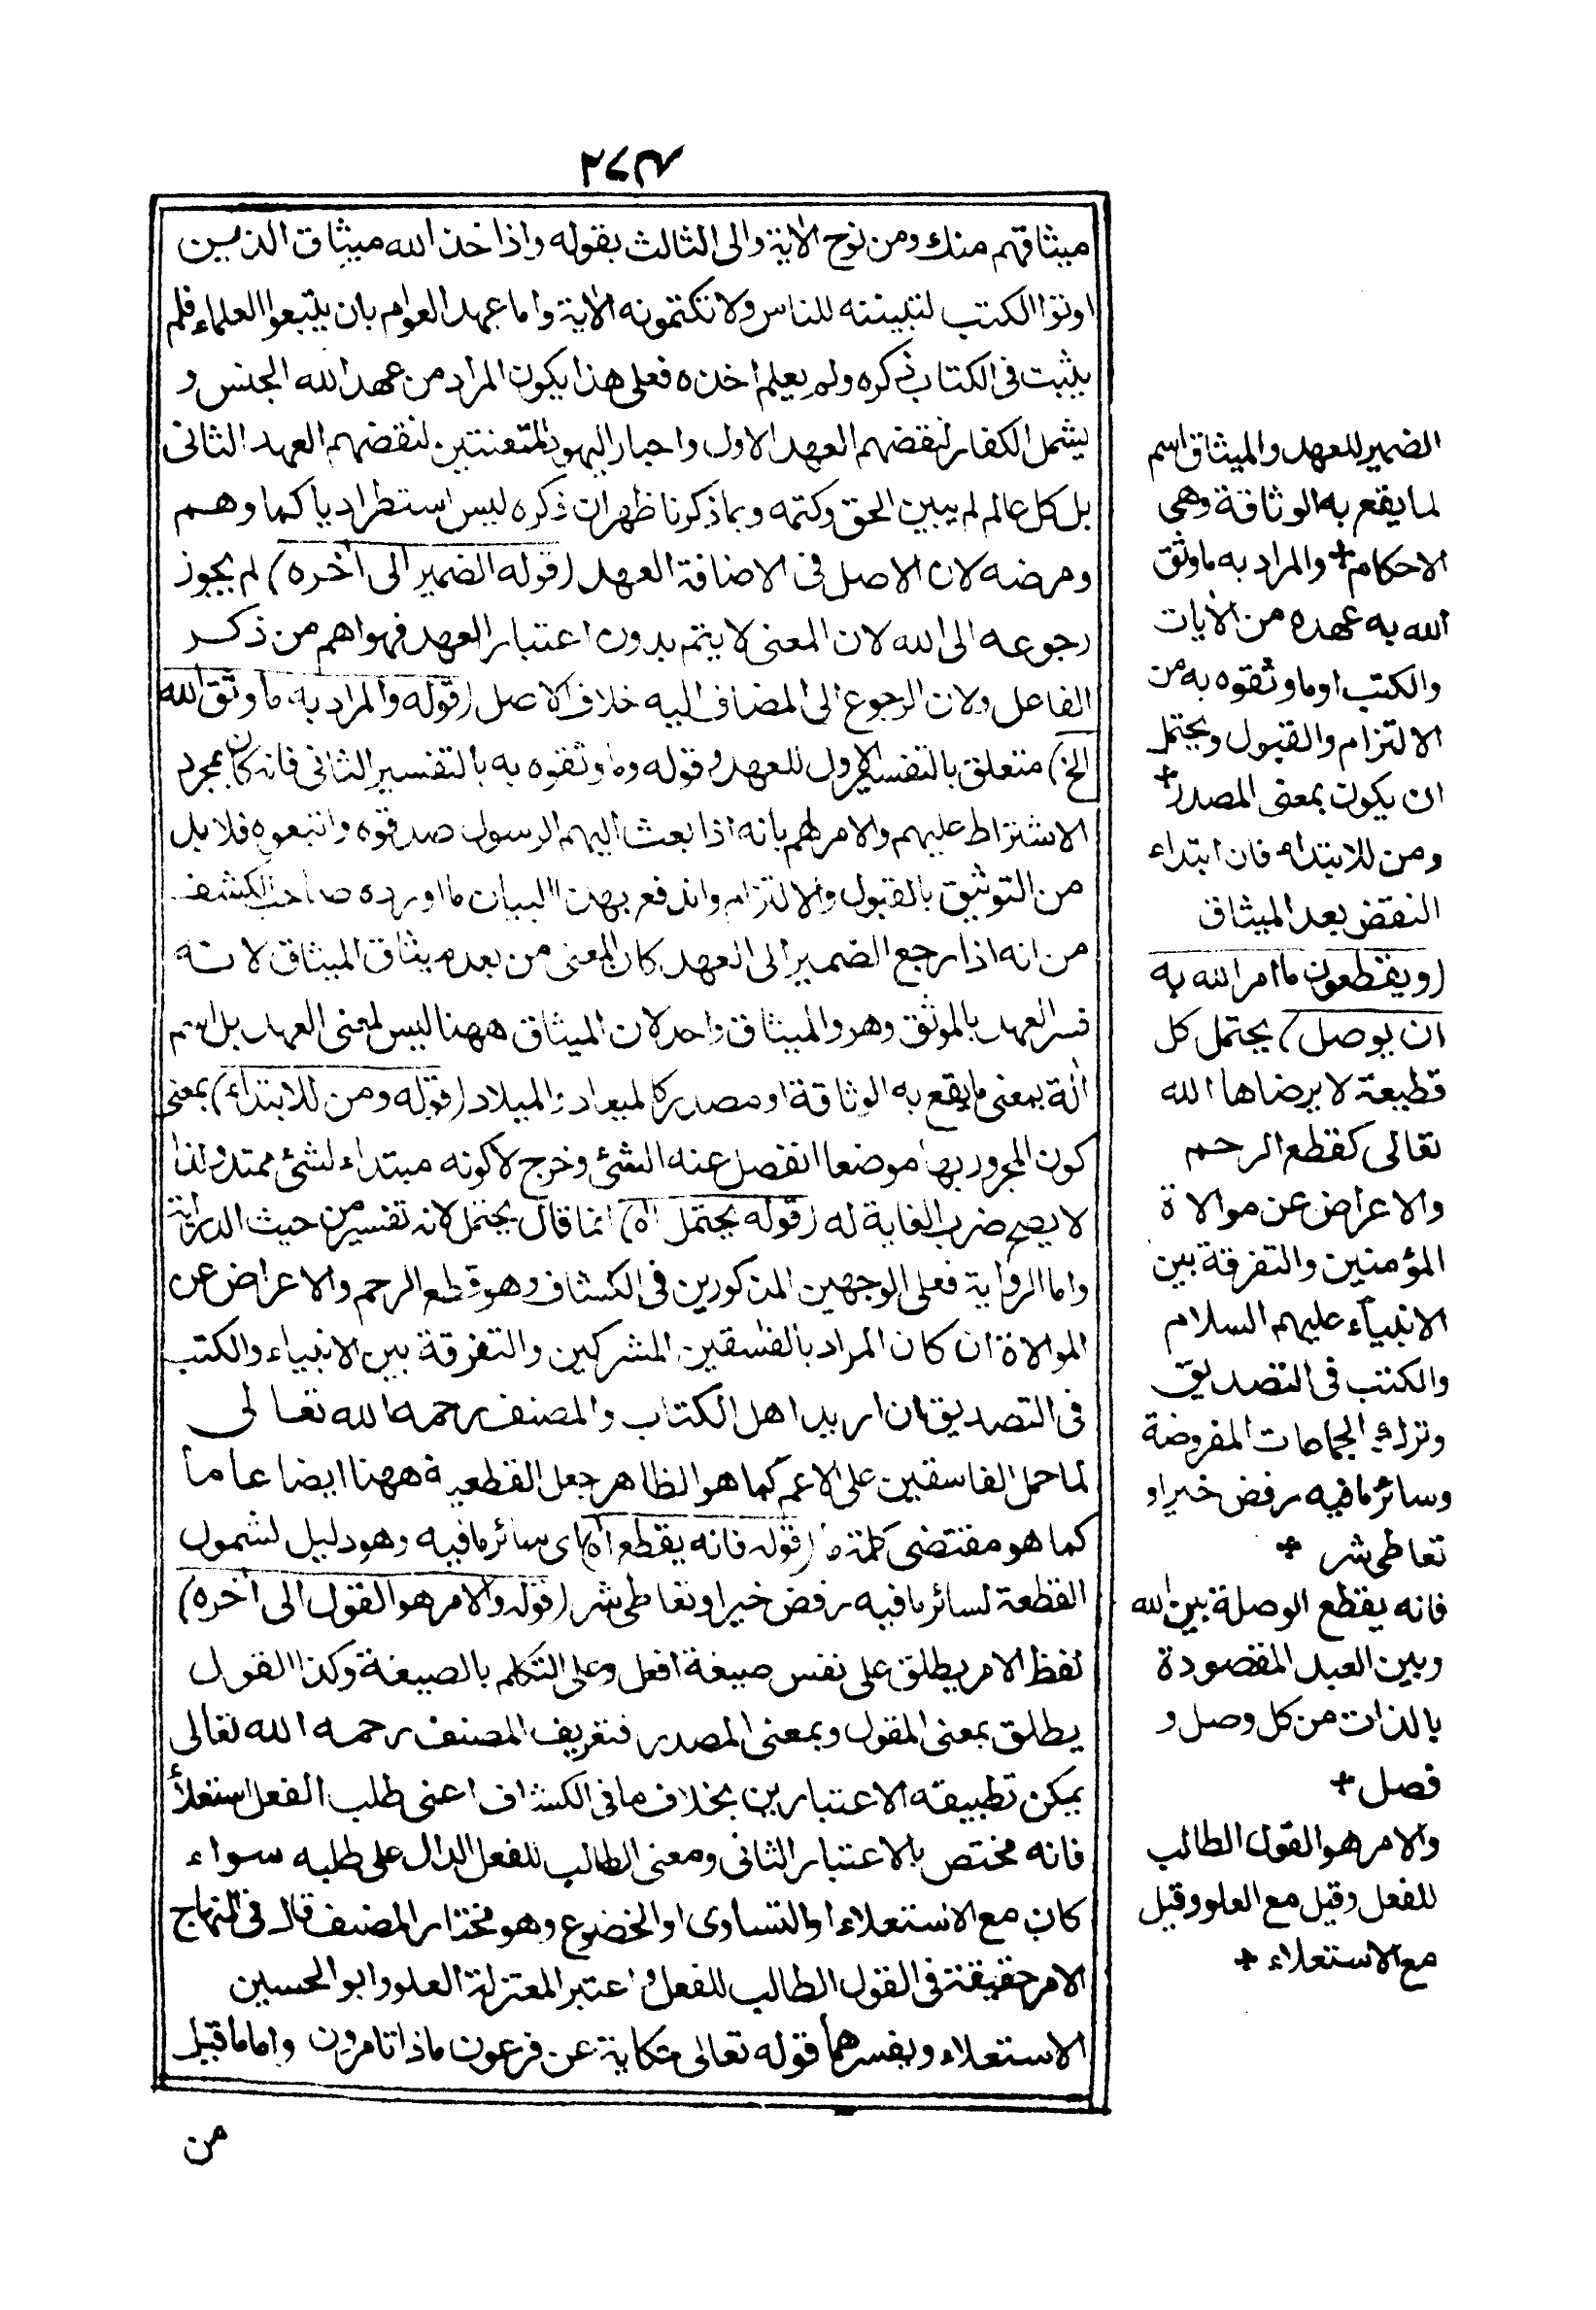 ميثاقهم منك ومن نوح الاية والى الثالث بقوله واذ اخذ الله ميثاق الذين
اوتوا الكتب لتبيننه للناس ولا تكتمونه الاية واما عهد العوام بان يتبعوا العلماء فلم
يثبت فى الكتاب ذكره ولم يعلم اخذه فعلى هذا يكون المراد من عهد الله الجنس و
يشمل الكفار لنقضهم العهد الاول واحبار اليهود المتعنتين لنقضهم العهد الثانى
بل كل عالم لم يبين الحق وكتمه وبما ذكرنا ظهر ان ذكره ليس استطراديا كما وهم
ومرضه لان الاصل فى الاضافة العهد (قوله الضمير الى اخره) لم يجوز
رجوعه الى الله لان المعنى لا يتم بدون اعتبار العهد فهو اهم من ذكر
الفاعل ولان الرجوع الى المضاف اليه خلاف الاصل (قوله والمراد به ما وثق الله
الخ) متعلق بالتفسير الاول للعهد وقوله وما وثقوه به بالتفسير الثانى فانه كان بمجرد
الاشتراط عليهم والامر لهم بانه اذا بعث اليهم الرسول صدقوه واتبعوه فلا بل
من التوثيق بالقبول والالتزام واندفع بهذا البيان ما اورده صاحب الكشف
من انه اذا رجع الضمير الى العهد كان المعنى من بعد ميثاق الميثاق لانه
فسر العهد بالموثق وهو والميثاق واحد لان الميثاق ههنا ليس لمعنى العهد بل اسم
الة بمعنى ما يقع به الوثاقة او مصدر كالميعاد والميلاد (قوله ومن للابتداء) بمعنى
كون المجرور بها موضعا انفصل عنه الشئ وخرج لا كونه مبتداء لشئ ممتد ولذا
لا يصح ضرب الغاية له (قوله يحتمل اه) انما قال يحتمل لانه تفسير من حيث الدراية
واما الرواية فعلى الوجهين المذكورين فى الكشاف وهو قطع الرحم والاعراض عن
الموالاة ان كان المراد بالفسقين المشركين والتفرقة بين الانبياء والكتب
فى التصديق ان اريد اهل الكتاب والمصنف رحمه الله تعالى
لما حمل الفاسقين على الاعم كما هو الظاهر جعل القطعية ههنا ايضا عاما
كما هو مقتضى كلمة ما (قوله فانه يقطع اه) اى سائر ما فيه وهو دليل لشمول
القطعة لسائر ما فيه رفض خير او تعاطى شر (قوله والامر هو القول الى اخره)
لفظ الامر يطلق على نفس صيغة افعل وعلى التكلم بالصيغة وكذا القول
يطلق بمعنى المقول وبمعنى المصدر فتعريف المصنف رحمه الله تعالى
يمكن تطبيقه الاعتبارين بخلاف ما فى الكشاف اعنى طلب الفعل استعلأ
فانه مختص بالاعتبار الثانى ومعنى الطالب للفعل الدال على طلبه سواء
كان مع الاستعلاء او التساوى او الخضوع وهو مختار المصنف قال فى المنهاج
الامر حقيقة فى القول الطالب للفعل واعتبر المعتزلة العلو وابو الحسين
الاستعلاء ويفسرهما قوله تعالى حكاية عن فرعون ماذا تامرون واما ما قيل
من
الضمير للعهد والميثاق اسم
لما يقع به الوثاقة وهى
الاحكام + والمراد به ما وثق
الله به عهده من الايات
والكتب او ما وثقوه به من
الالتزام والقبول ويحتمل
ان يكون بمعنى المصدر +
ومن للابتداء فان ابتداء
النقض بعد الميثاق
(ويقطعون ما امر الله به
ان يوصل) يحتمل كل
قطيعة لا يرضاها الله
تعالى كقطع الرحم
والاعراض عن موالاة
المؤمنين والتفرقة بين
الانبياء عليهم السلام
والكتب فى التصديق
وترك الجماعات المفروضة
وسائر ما فيه رفض خير او
تعاطى شر +
فانه يقطع الوصلة بين الله
وبين العبد المقصودة
بالذات من كل وصل و
فصل +
والامر هو القول الطالب
للفعل وقيل مع العلو وقيل
مع الاستعلاء +